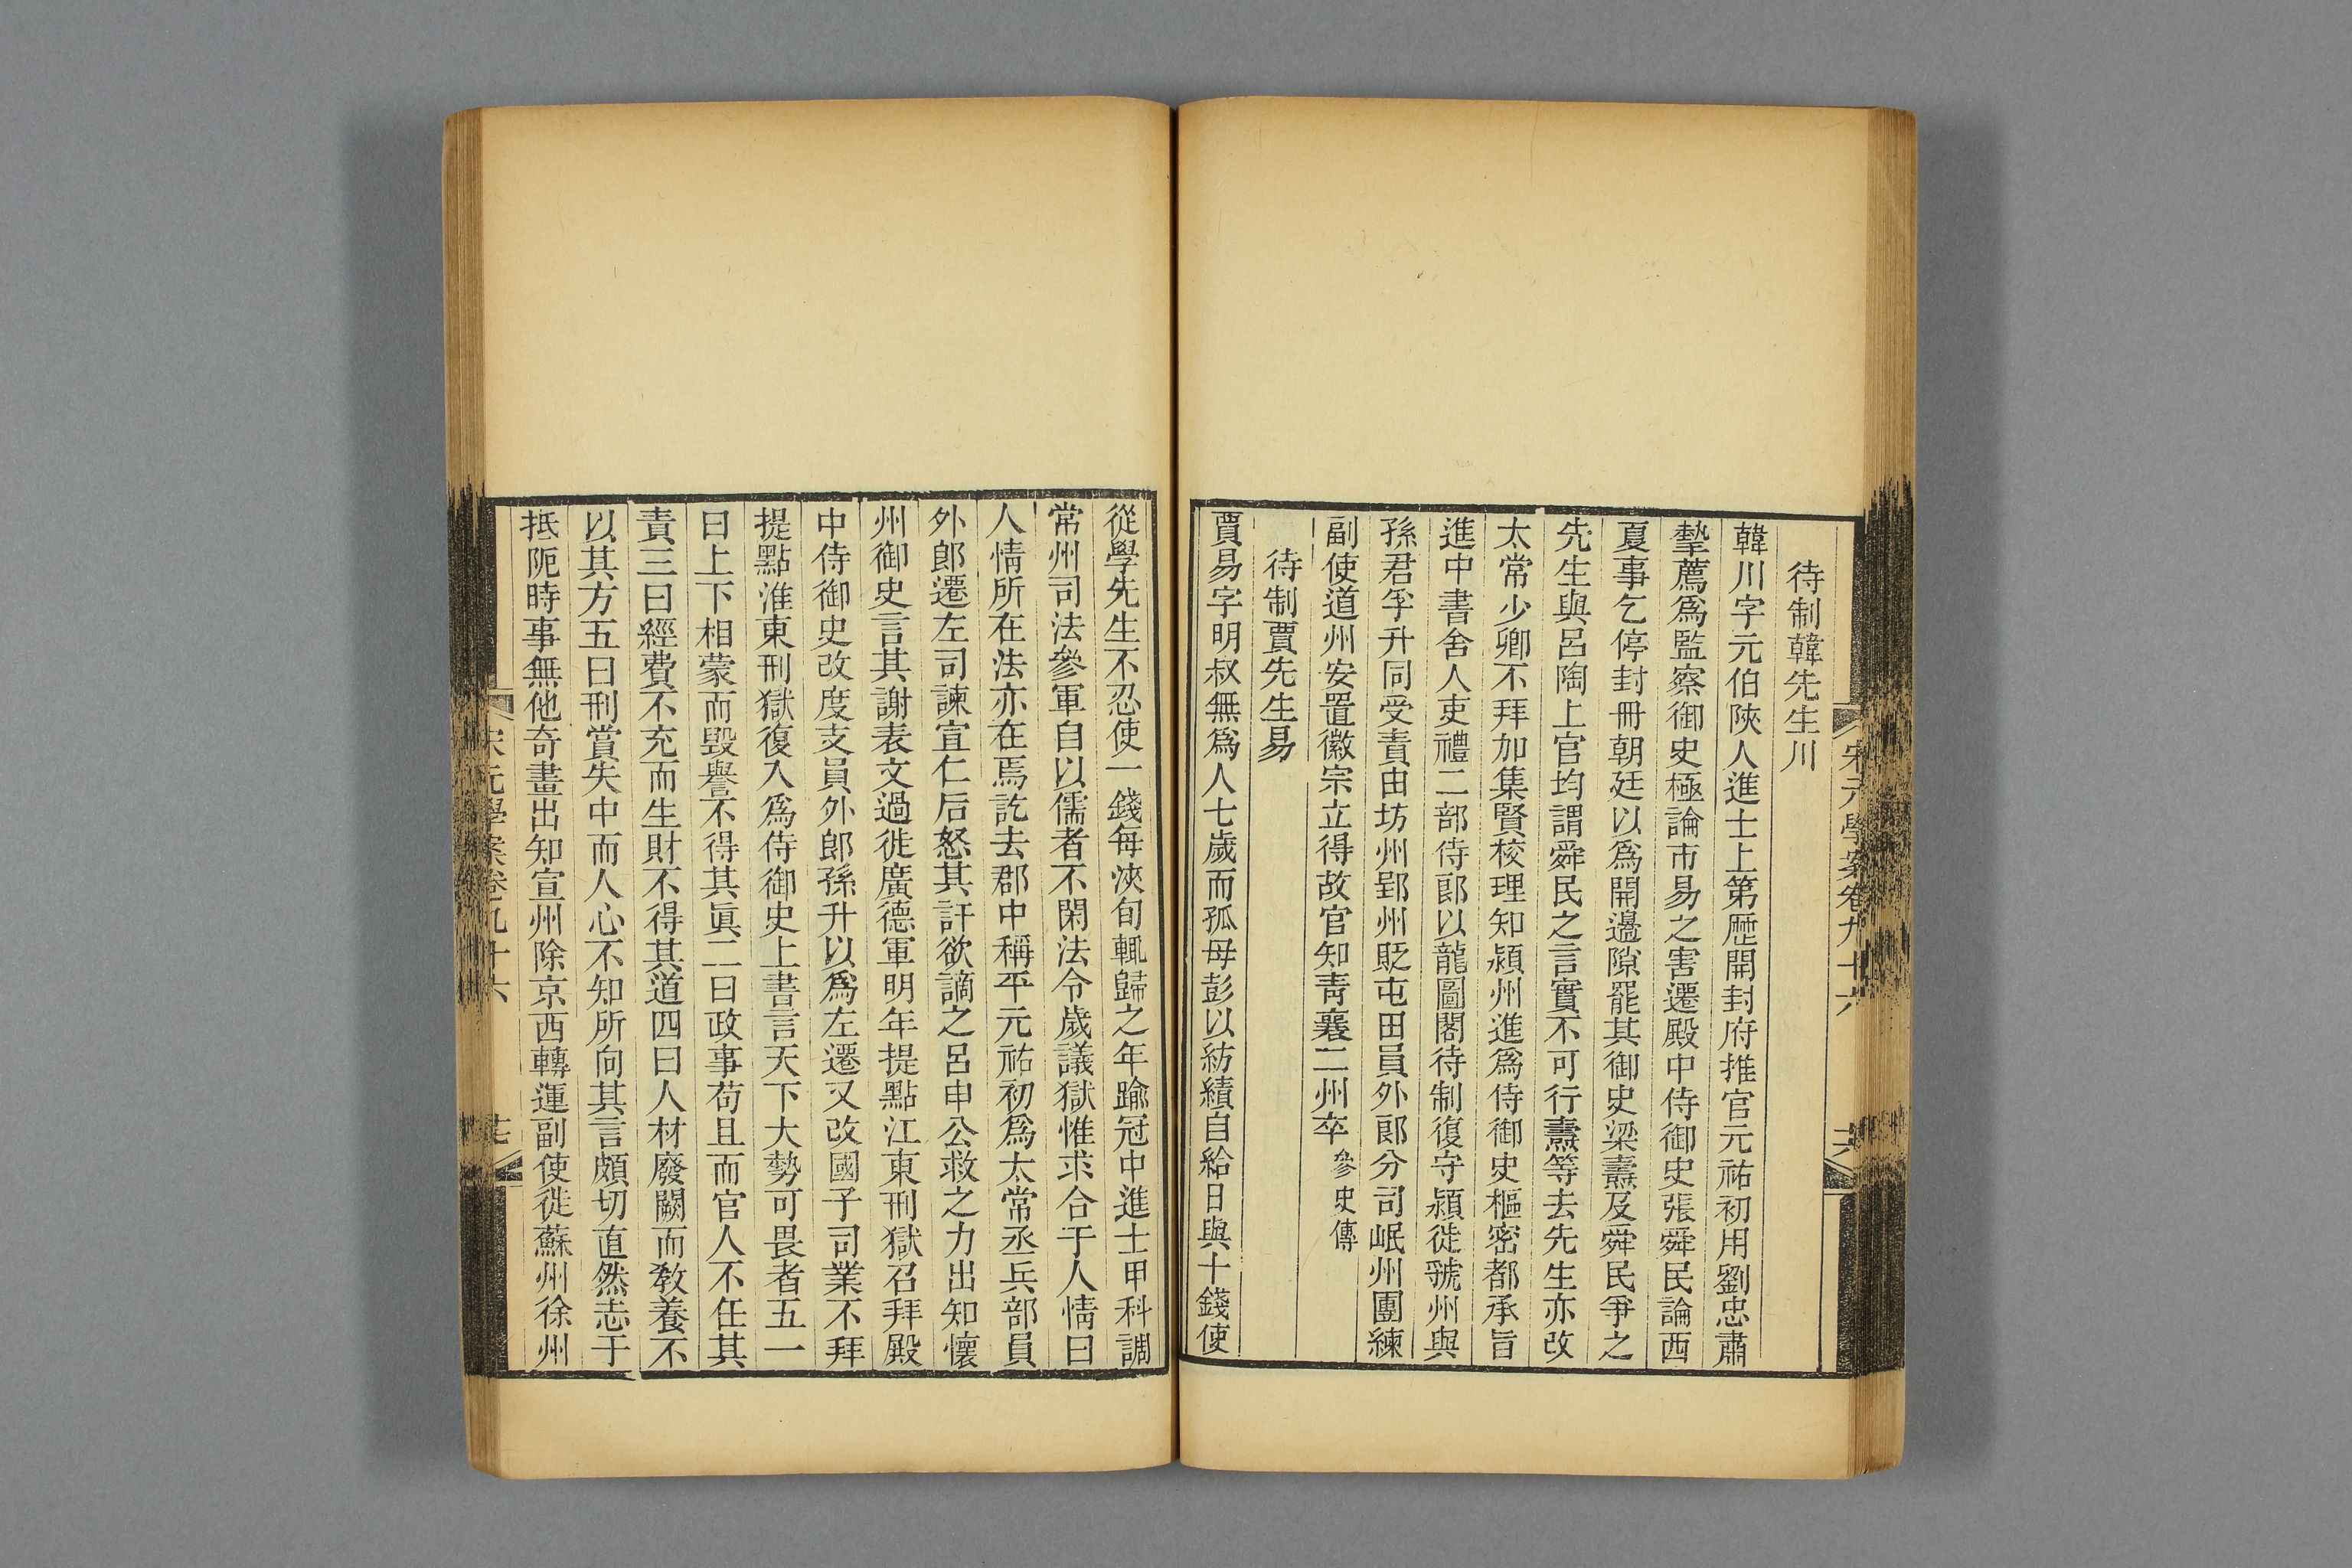 宋元學案卷九十六
六
待制韓先生川
韓川字元伯陝人進士上第歷開封府推官元祐初用劉忠肅
摯薦爲監察御史極論市易之害遷殿中侍御史張舜民論西
夏事乞停封冊朝廷以爲開邊隙罷其御史梁燾及舜民爭之
先生與呂陶上官均謂舜民之言實不可行燾等去先生亦改
太常少卿不拜加集賢校理知潁州進爲侍御史樞密都承旨
進中書舍人吏禮二部侍郎以龍圖閣待制復守潁徙虢州與
孫君孚升同受責由坊州郢州貶屯田員外郎分司岷州團練
副使道州安置徽宗立得故官知靑襄二州卒參史傳
待制賈先生易
賈易字明叔無爲人七歲而孤母彭以紡績自給日與十錢使
從學先生不忍使一錢每浹旬輒歸之年踰冠中進士甲科調
常州司法參軍自以儒者不閑法令歲議獄惟求合于人情曰
人情所在法亦在焉訖去郡中稱平元祐初爲太常丞兵部員
外郎遷左司諫宣仁后怒其訐欲謫之呂申公救之力出知懷
州御史言其謝表文過徙廣德軍明年提點江東刑獄召拜殿
中侍御史改度支員外郎孫升以爲左遷又改國子司業不拜
提點淮東刑獄復入爲侍御史上書言天下大勢可畏者五一
曰上下相蒙而毀譽不得其眞二曰政事苟且而官人不任其
責三曰經費不充而生財不得其道四曰人材廢闕而敎養不
以其方五曰刑賞失中而人心不知所向其言頗切直然志于
抵阨時事無他奇畫出知宣州除京西轉運副使徙蘇州徐州
宋元學案卷九十六